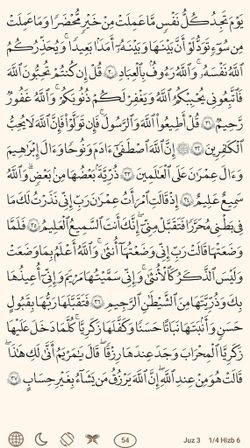 يَوْمَ تَجِدُ كُلُّ نَفْسٍ مَّا عَمِلَتْ مِنْ خَيْرٍ مُّحْضَرًا وَمَا عَمِلَتْ
مِن سُوٓءٍ تَوَدُّ لَوْ أَنَّ بَيْنَهَا وَبَيْنَهُۥٓ أَمَدًۢا بَعِيدًا ۗ وَيُحَذِّرُكُمُ
ٱللَّهُ نَفْسَهُۥ ۗ وَٱللَّهُ رَءُوفٌۢ بِٱلْعِبَادِ ٣٠ قُلْ إِن كُنتُمْ تُحِبُّونَ ٱللَّهَ
فَٱتَّبِعُونِى يُحْبِبْكُمُ ٱللَّهُ وَيَغْفِرْ لَكُمْ ذُنُوبَكُمْ ۗ وَٱللَّهُ غَفُورٌ
رَّحِيمٌ ٣١ قُلْ أَطِيعُوا۟ ٱللَّهَ وَٱلرَّسُولَ ۖ فَإِن تَوَلَّوْا۟ فَإِنَّ ٱللَّهَ لَا يُحِبُّ
ٱلْكَٰفِرِينَ ٣٢ ۞ إِنَّ ٱللَّهَ ٱصْطَفَىٰٓ ءَادَمَ وَنُوحًا وَءَالَ إِبْرَٰهِيمَ
وَءَالَ عِمْرَٰنَ عَلَى ٱلْعَٰلَمِينَ ٣٣ ذُرِّيَّةًۢ بَعْضُهَا مِنۢ بَعْضٍ ۗ وَٱللَّهُ
سَمِيعٌ عَلِيمٌ ٣٤ إِذْ قَالَتِ ٱمْرَأَتُ عِمْرَٰنَ رَبِّ إِنِّى نَذَرْتُ لَكَ مَا
فِى بَطْنِى مُحَرَّرًا فَتَقَبَّلْ مِنِّىٓ ۖ إِنَّكَ أَنتَ ٱلسَّمِيعُ ٱلْعَلِيمُ ٣٥ فَلَمَّا
وَضَعَتْهَا قَالَتْ رَبِّ إِنِّى وَضَعْتُهَآ أُنثَىٰ وَٱللَّهُ أَعْلَمُ بِمَا وَضَعَتْ
وَلَيْسَ ٱلذَّكَرُ كَٱلْأُنثَىٰ ۖ وَإِنِّى سَمَّيْتُهَا مَرْيَمَ وَإِنِّىٓ أُعِيذُهَا
بِكَ وَذُرِّيَّتَهَا مِنَ ٱلشَّيْطَٰنِ ٱلرَّجِيمِ ٣٦ فَتَقَبَّلَهَا رَبُّهَا بِقَبُولٍ
حَسَنٍ وَأَنۢبَتَهَا نَبَاتًا حَسَنًا وَكَفَّلَهَا زَكَرِيَّا ۖ كُلَّمَا دَخَلَ عَلَيْهَا
زَكَرِيَّا ٱلْمِحْرَابَ وَجَدَ عِندَهَا رِزْقًا ۖ قَالَ يَٰمَرْيَمُ أَنَّىٰ لَكِ هَٰذَا ۖ
قَالَتْ هُوَ مِنْ عِندِ ٱللَّهِ ۖ إِنَّ ٱللَّهَ يَرْزُقُ مَن يَشَآءُ بِغَيْرِ حِسَابٍ ٣٧
54 Juz 3 1/4 Hizb 6